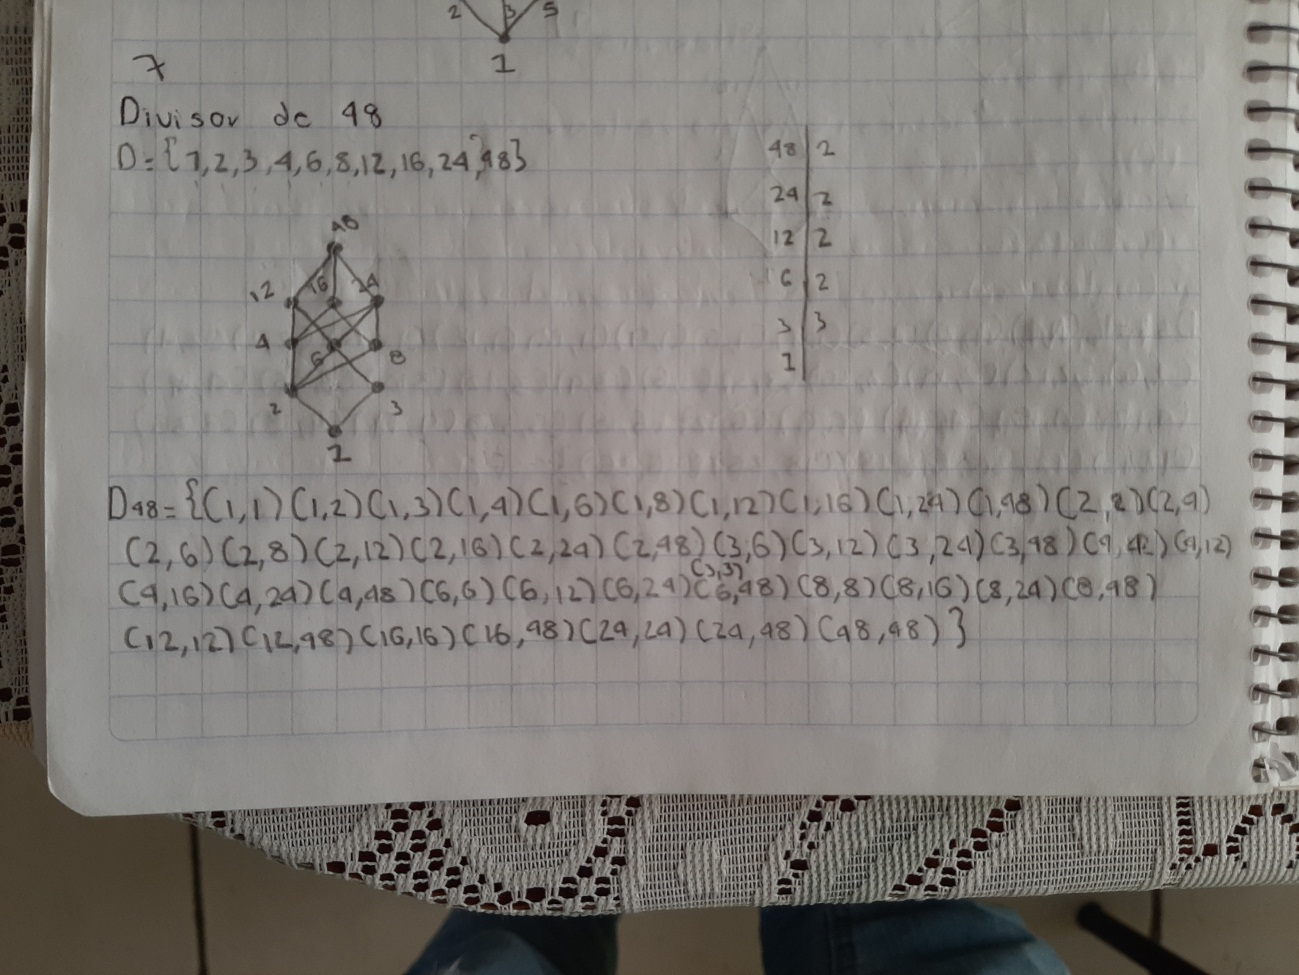 2 3 5
1
7
Divisor de 48
D={1,2,3,4,6,8,12,16,24,48}
48 2
24 2
12 2
6 2
3 3
1
48
12 16 24
4 6 8
2 3
1
D48={(1,1)(1,2)(1,3)(1,4)(1,6)(1,8)(1,12)(1,16)(1,24)(1,48)(2,2)(2,4)
(2,6)(2,8)(2,12)(2,16)(2,24)(2,48)(3,6)(3,12)(3,24)(3,48)(4,12)
(3,3)
(4,16)(4,24)(4,48)(6,6)(6,12)(6,24)(6,48)(8,8)(8,16)(8,24)(8,48)
(12,12)(12,48)(16,16)(16,48)(24,24)(24,48)(48,48)}